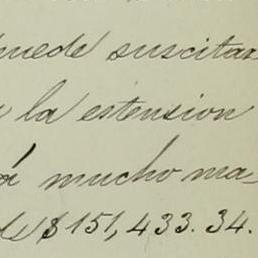 puede suscitar
la estension
mucho ma-
de $151,433.34.